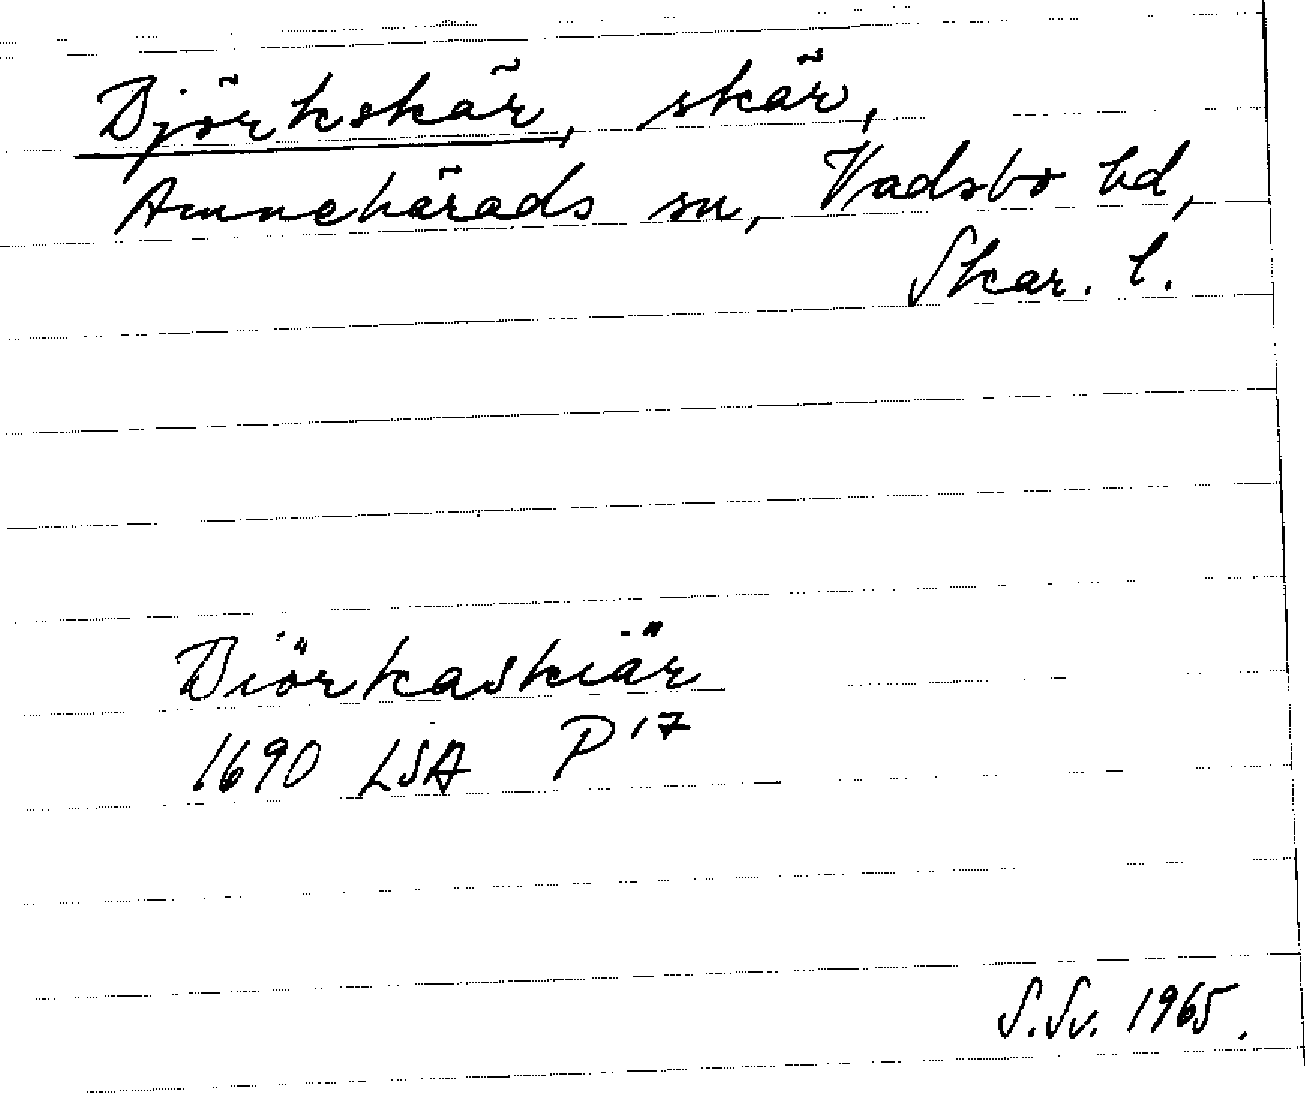 Björkskär, skär,
Amnehärads sn, Vadsbo hd,
Skar. l.
Biörkaskiär
1690 LSA P 17
S.Sv. 1965.